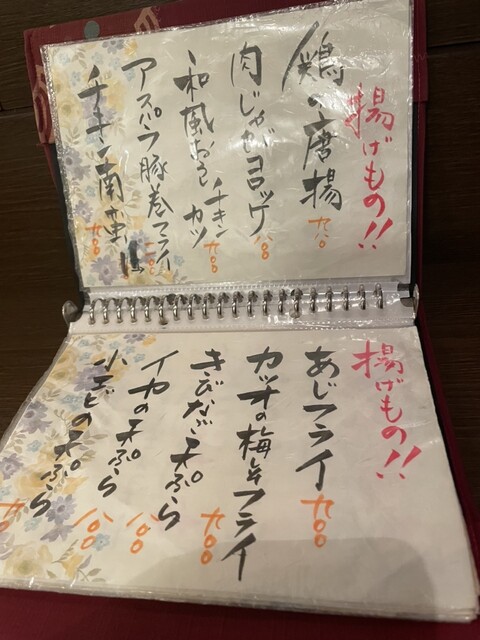 揚げもの!!
鶏の唐揚 九〇〇
肉じゃがコロッケ 八〇〇
和風おろしチキンカツ 九〇〇
アスパラ豚巻フライ 一二〇〇
チキン南蛮 九〇〇
揚げもの!!
あじフライ 九〇〇
カツオの梅じそフライ 九〇〇
きびなご天ぷら 九〇〇
イカの天ぷら 八〇〇
小エビの天ぷら 八〇〇
九〇